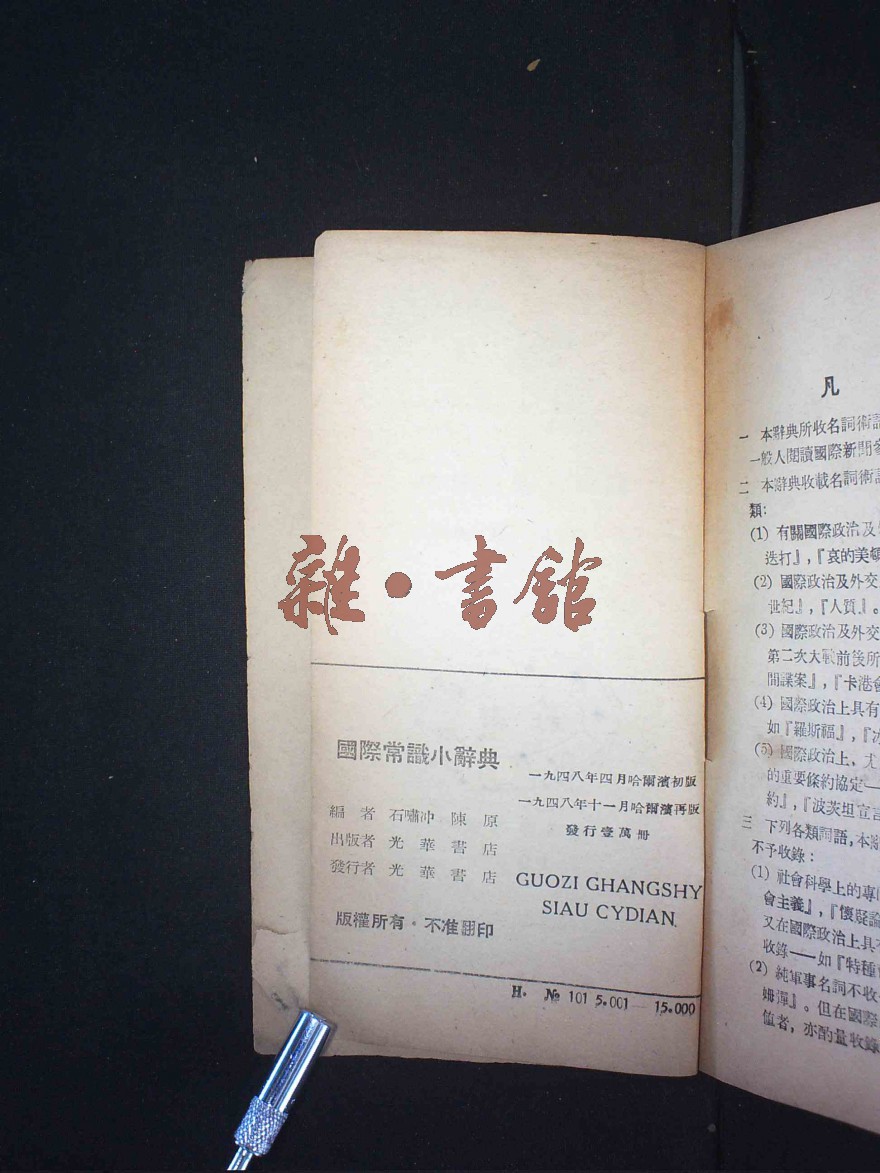 雜·書館
國際常識小辭典
一九四八年四月哈爾濱初版
一九四八年十一月哈爾濱再版
發行壹萬冊
編者 石嘯冲 陳原
出版者 光華書店
發行者 光華書店
GUOZI GHANGSHY
SIAU CYDIAN
版權所有·不准翻印
H. № 101 5.001—15.000
凡
一 本辭典所收名詞術語
一般人閱讀國際新聞參
二 本辭典收載名詞術語
類：
(1) 有關國際政治及
迭打』，『哀的美頓
(2) 國際政治及外交
世紀』，『人質』。
(3) 國際政治及外交
第二次大戰前後所
間諜案』，『卡港會
(4) 國際政治上具有
如『羅斯福』，『
(5) 國際政治上，尤
的重要條約協定—
約』，『波茨坦宣言
三 下列各類詞語，本辭
不予收錄：
(1) 社會科學上的專門
會主義』，『懷疑論
又在國際政治上具有
收錄——如『特種
(2) 純軍事名詞不收
姆彈』。但在國際
值者，亦酌量收錄